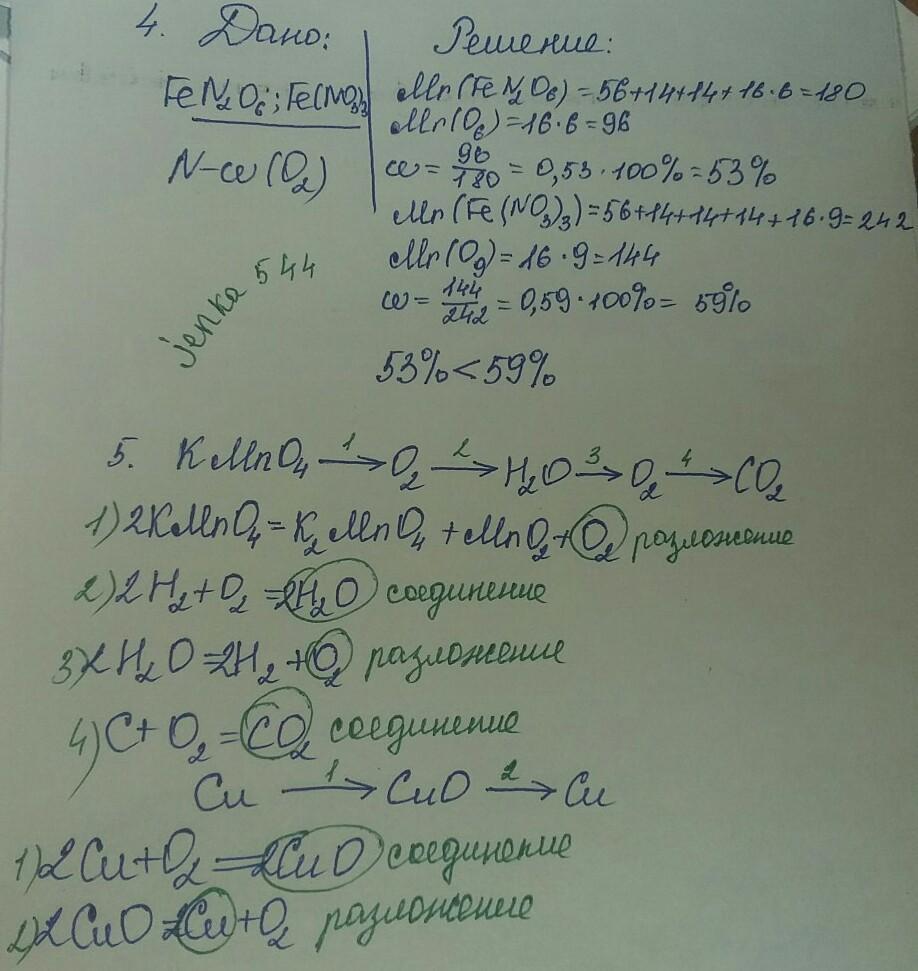 4. Дано:
FeN₂O₆; Fe(NO₃)₃
N-ω(O₂)
Решение:
Mr(FeN₂O₆)=56+14+14+16·6=180
Mr(O₆)=16·6=96
ω=96/180=0,53·100%=53%
Mr(Fe(NO₃)₃)=56+14+14+14+16·9=242
Mr(O₉)=16·9=144
ω=144/242=0,59·100%=59%
53%<59%
jenka 544
5. KMnO₄ 1→ O₂ 2→ H₂O 3→ O₂ 4→ CO₂
1) 2KMnO₄=K₂MnO₄+MnO₂+O₂ разложение
2) 2H₂+O₂=2H₂O соединение
3) 2H₂O=2H₂+O₂ разложение
4) C+O₂=CO₂ соединение
Cu 1→ CuO 2→ Cu
1) 2Cu+O₂=2CuO соединение
2) 2CuO=2Cu+O₂ разложение